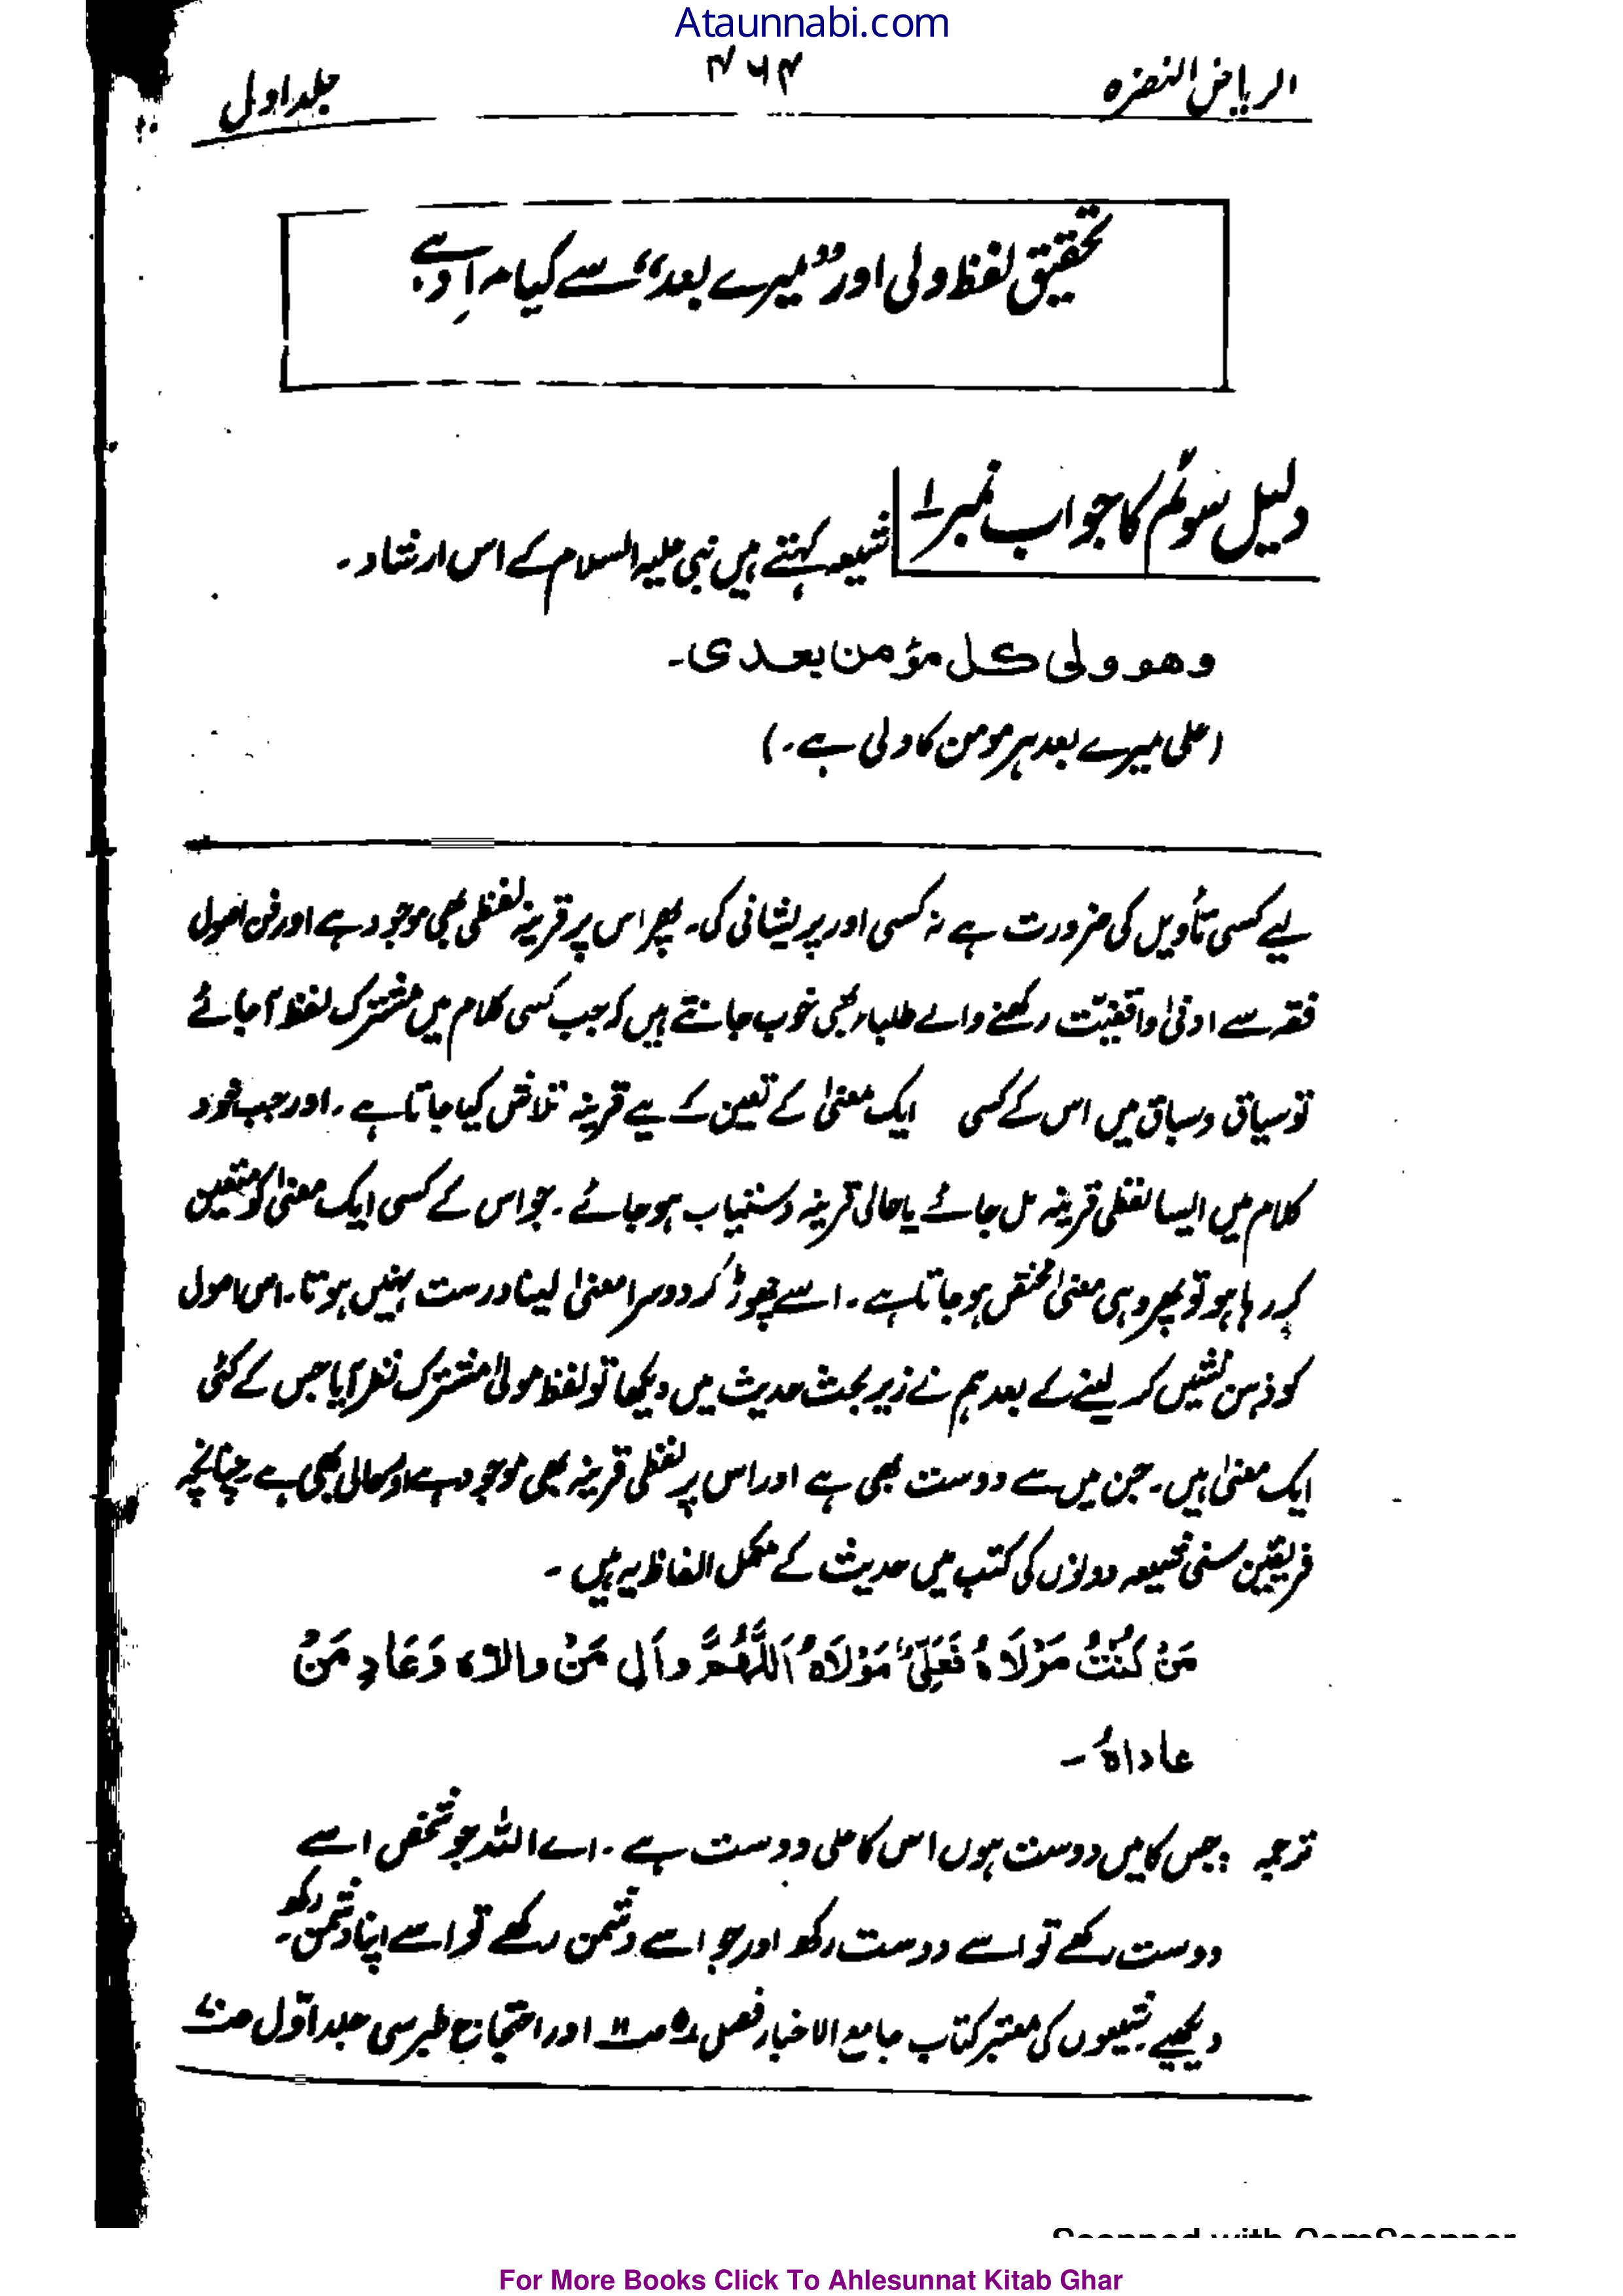 Ataunnabi.com
الریاض النضرہ ۴۶۴ جلد اول
تحقیق لفظ ولی اور ”میرے بعد“ سے کیا مراد ہے
دلیل سوئم کا جواب نمبر ۱
شیعہ کہتے ہیں نبی علیہ السلام کے اس ارشاد۔
وھو ولی کل مؤمن بعدی۔
(علی میرے بعد ہر مومن کا ولی ہے۔)
لیے کسی تأویل کی ضرورت ہے نہ کسی اور پریشانی کی۔ پھر اس پر قرینہ لفظی بھی موجود ہے اور فن اصول
فقہ سے ادنیٰ واقفیت رکھنے والے طلباء بھی خوب جانتے ہیں کہ جب کسی کلام میں مشترک لفظ آجائے
تو سیاق و سباق میں اس کے کسی ایک معنیٰ کے تعین کے لیے قرینہ تلاش کیا جاتا ہے۔ اور جب خود
کلام میں ایسا لفظی قرینہ مل جائے یا حالی قرینہ دستیاب ہو جائے۔ جو اس کے کسی ایک معنیٰ کو متعین
کر رہا ہو تو پھر وہی معنیٰ مختص ہو جاتا ہے۔ اسے چھوڑ کر دوسرا معنیٰ لینا درست نہیں ہوتا۔ اس اصول
کو ذہن نشیں کر لینے کے بعد ہم نے زیر بحث حدیث میں دیکھا تو لفظ مولیٰ مشترک نظر آیا جس کے کئی
ایک معنیٰ ہیں۔ جن میں سے دوست بھی ہے اور اس پر لفظی قرینہ بھی موجود ہے اور حالی بھی ہے چنانچہ
فریقین سنی شیعہ دونوں کی کتب میں حدیث کے مکمل الفاظ یہ ہیں۔
مَنْ کُنْتُ مَوْلَاہُ فَعَلِیٌّ مَوْلَاہُ اَللّٰھُمَّ وَالِ مَنْ والاہ وَعَادِ مَنْ
عاداہُ۔
ترجمہ : جس کا میں دوست ہوں اس کا علی دوست ہے۔ اے اللہ جو شخص اسے
دوست رکھے تو اسے دوست رکھ اور جو اسے دشمن رکھے تو اسے اپنا دشمن رکھ۔
دیکھیے شیعوں کی معتبر کتاب جامع الاخبار فصل ۵ ص ۱۱ اور احتجاج طبرسی جلد اوّل
For More Books Click To Ahlesunnat Kitab Ghar